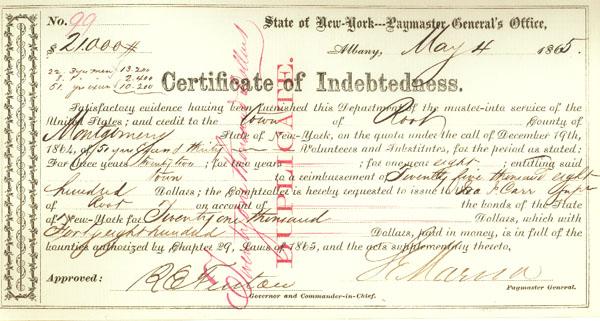 No. 99
State of New-York---Paymaster General's Office,
$21,000#
Albany, May 4 1865.
22. 3 yr men 13.200
8. 1 . 2.400
51. 10.200
Certificate of Indebtedness.
Satisfactory evidence having been furnished this Department of the muster-into service of the
United States; and credit to the town of Root County of
Montgomery State of New-York, on the quota under the call of December 19th,
1864, of 51 yrs Gun & thirty Volunteers and Substitutes, for the period as stated;
For three years twenty two ; for two years ; for one year eight ; entitling said
town to a reimbursement of Twenty five thousand eight
hundred Dollars; the Comptroller is hereby requested to issue to Carr
of Root on account of the bonds of the State
of New-York for Twenty one thousand Dollars, which with
Forty eight hundred Dollars, paid in money, is in full of the
bounties authorized by Chapter 29, Laws of 1865, and the acts supplementary thereto,
Approved: R E Fenton
Governor and Commander-in-Chief.
Paymaster General.
Twenty one thousand dollars
DUPLICATE.